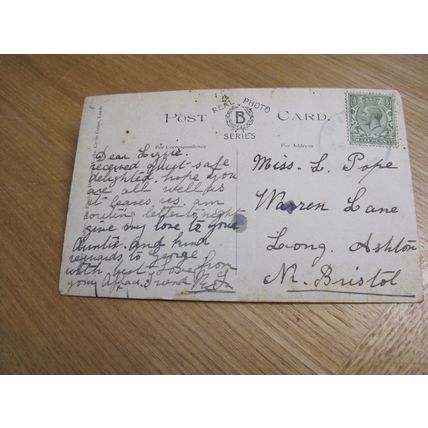 REAL PHOTO
POST CARD.
B
SERIES
For Correspondence
For Address
Dear Lizzie.
received quit safe
delighted, hope you
are all well, as
it leaves us. am
writing letter to night
give my love, to your
Auntie. and kind
regards, to George
with best Love from
your Affec. Friend
Miss. L. Pope
Warren Lane
Long. Ashton
N. Bristol